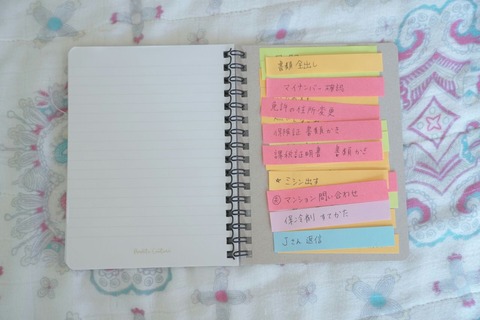 書類 全出し
マイナンバー確認
免許の住所変更
保険証 書類かき
課税証明書 書類かき
★ ミシン出す
マンション問い合わせ
保冷剤 すてかた
Jさん 返信